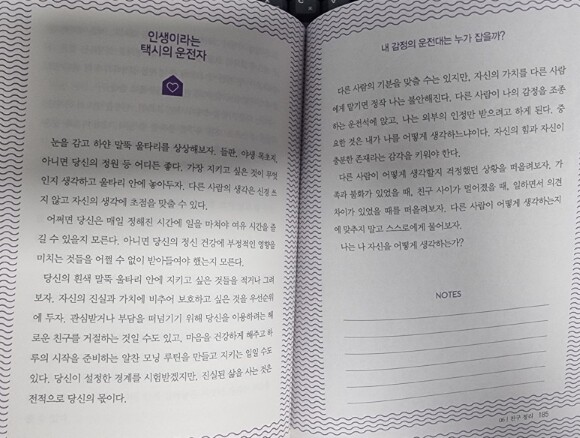 인생이라는
택시의 운전자
눈을 감고 하얀 말뚝 울타리를 상상해보자. 들판, 야생 목초지,
아니면 당신의 정원 등 어디든 좋다. 가장 지키고 싶은 것이 무엇
인지 생각하고 울타리 안에 놓아두자. 다른 사람의 생각은 신경 쓰
지 않고 자신의 생각에 초점을 맞출 수 있다.
어쩌면 당신은 매일 정해진 시간에 일을 마쳐야 여유 시간을 즐
길 수 있을지 모른다. 아니면 당신의 정신 건강에 부정적인 영향을
미치는 것들을 어쩔 수 없이 받아들여야 했는지 모른다.
당신의 흰색 말뚝 울타리 안에 지키고 싶은 것들을 적거나 그려
보자. 자신의 진실과 가치에 비추어 보호하고 싶은 것을 우선순위
에 두자. 관심받거나 부담을 떠넘기기 위해 당신을 이용하려는 해
로운 친구를 거절하는 것일 수도 있고, 마음을 건강하게 해주고 하
루의 시작을 준비하는 알찬 모닝 루틴을 만들고 지키는 일일 수도
있다. 당신이 설정한 경계를 시험받겠지만, 진실된 삶을 사는 것은
전적으로 당신의 몫이다.
내 감정의 운전대는 누가 잡을까?
다른 사람의 기분을 맞출 수는 있지만, 자신의 가치를 다른 사람
에게 맡기면 정작 나는 불안해진다. 다른 사람이 나의 감정을 조종
하는 운전석에 앉고, 나는 외부의 인정만 받으려고 하게 된다. 중
요한 것은 내가 나를 어떻게 생각하느냐이다. 자신의 힘과 자신이
충분한 존재라는 감각을 키워야 한다.
다른 사람이 나를 어떻게 생각할지 걱정했던 상황을 떠올려보자. 가
족과 불화가 있었을 때, 친구 사이가 멀어졌을 때, 일하면서 의견
차이가 있었을 때를 떠올려보자. 다른 사람이 어떻게 생각하는지
에 맞추지 말고 스스로에게 물어보자.
나는 나 자신을 어떻게 생각하는가?
NOTES
06 | 친구 정리 185